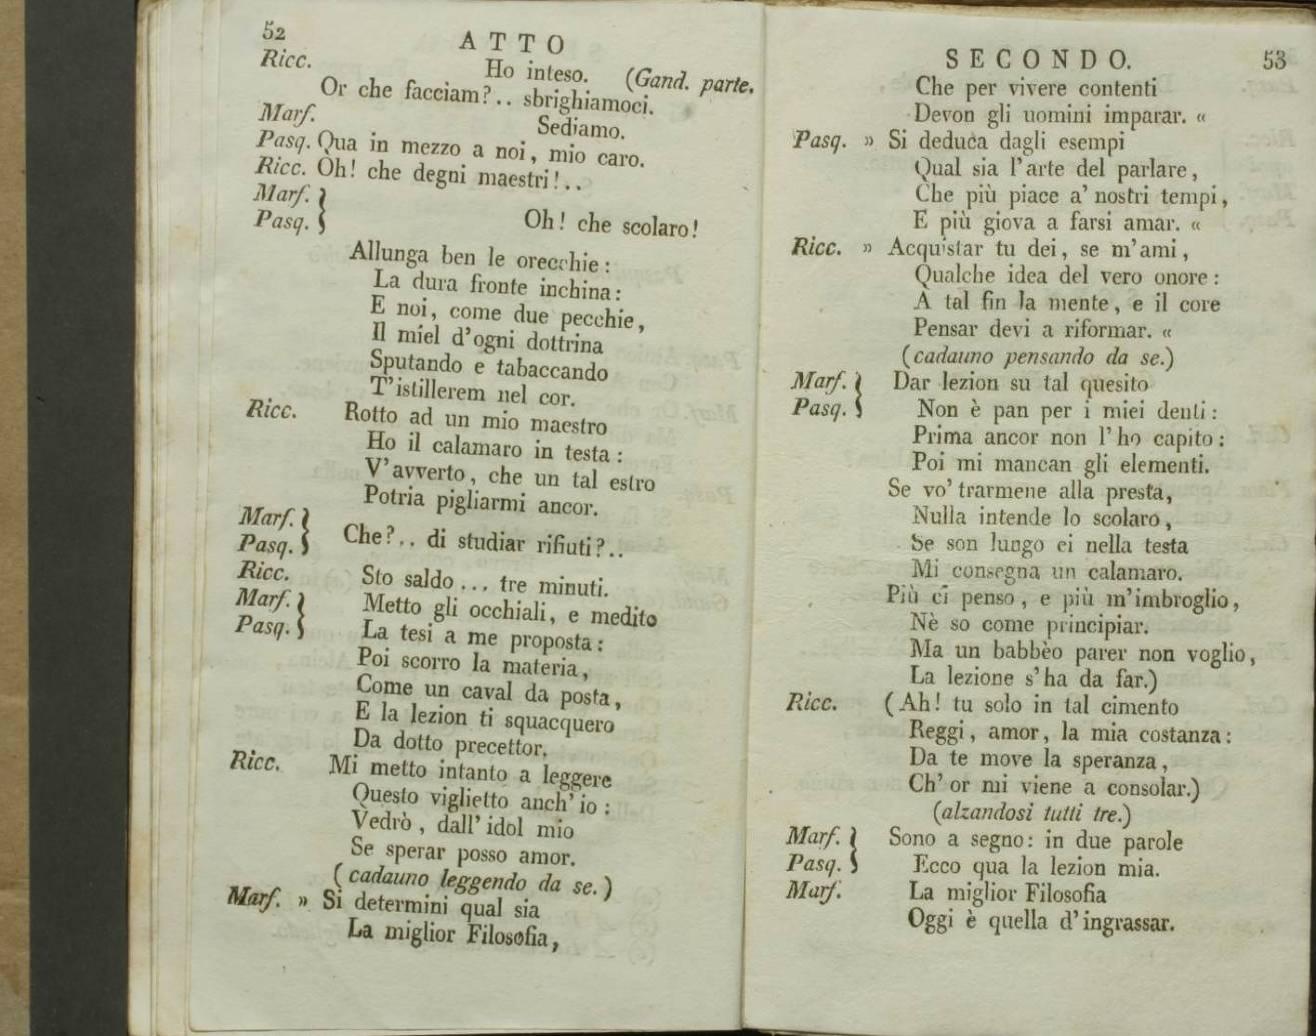 52
ATTO
Ricc. Ho inteso. (Gand. parte.
Or che facciam?.. sbrighiamoci.
Marf. Sediamo.
Pasq. Qua in mezzo a noi, mio caro.
Ricc. Oh! che degni maestri!..
Marf. }
Pasq. } Oh! che scolaro!
Allunga ben le orecchie:
La dura fronte inchina:
E noi, come due pecchie,
Il miel d'ogni dottrina
Sputando e tabaccando
T'istillerem nel cor.
Ricc. Rotto ad un mio maestro
Ho il calamaro in testa:
V'avverto, che un tal estro
Potria pigliarmi ancor.
Marf. }
Pasq. } Che?.. di studiar rifiuti?..
Ricc. Sto saldo... tre minuti.
Marf. } Metto gli occhiali, e medito
Pasq. } La tesi a me proposta:
Poi scorro la materia,
Come un caval da posta,
E la lezion ti squacquero
Da dotto precettor.
Ricc. Mi metto intanto a leggere
Questo viglietto anch' io:
Vedrò, dall' idol mio
Se sperar posso amor.
(cadauno leggendo da se.)
Marf. » Si determini qual sia
La miglior Filosofia,
SECONDO.
53
Che per vivere contenti
Devon gli uomini imparar. «
Pasq. » Si deduca dagli esempi
Qual sia l'arte del parlare,
Che più piace a' nostri tempi,
E più giova a farsi amar. «
Ricc. » Acquistar tu dei, se m'ami,
Qualche idea del vero onore:
A tal fin la mente, e il core
Pensar devi a riformar. «
(cadauno pensando da se.)
Marf. } Dar lezion su tal quesito
Pasq. } Non è pan per i miei denti:
Prima ancor non l' ho capito:
Poi mi mancan gli elementi.
Se vo' trarmene alla presta,
Nulla intende lo scolaro,
Se son lungo ei nella testa
Mi consegna un calamaro.
Più ci penso, e più m'imbroglio,
Nè so come principiar.
Ma un babbèo parer non voglio,
La lezione s'ha da far.)
Ricc. (Ah! tu solo in tal cimento
Reggi, amor, la mia costanza:
Da te move la speranza,
Ch' or mi viene a consolar.)
(alzandosi tutti tre.)
Marf. } Sono a segno: in due parole
Pasq. } Ecco qua la lezion mia.
Marf. La miglior Filosofia
Oggi è quella d'ingrassar.